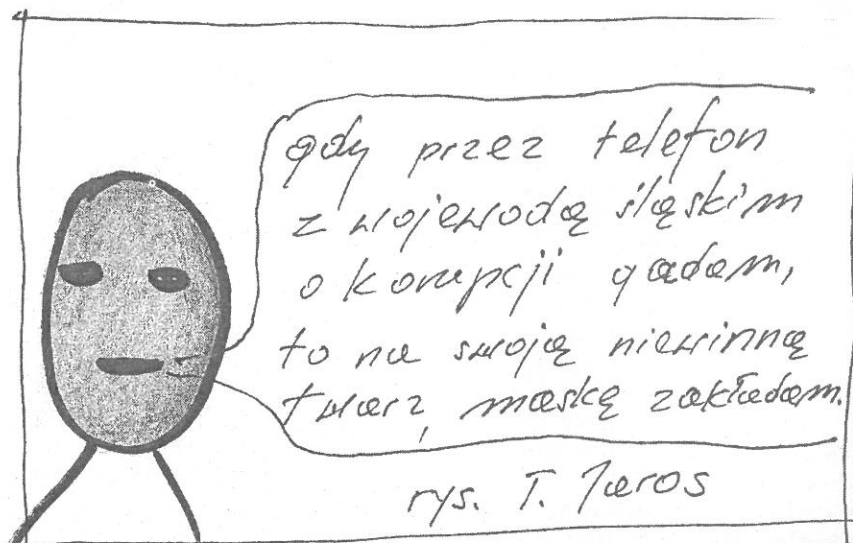 gdy przez telefon
z wojewodą śląskim
o korupcji gadam,
to na swoją niewinną
twarz, maskę zakładam.
rys. T. Jaros